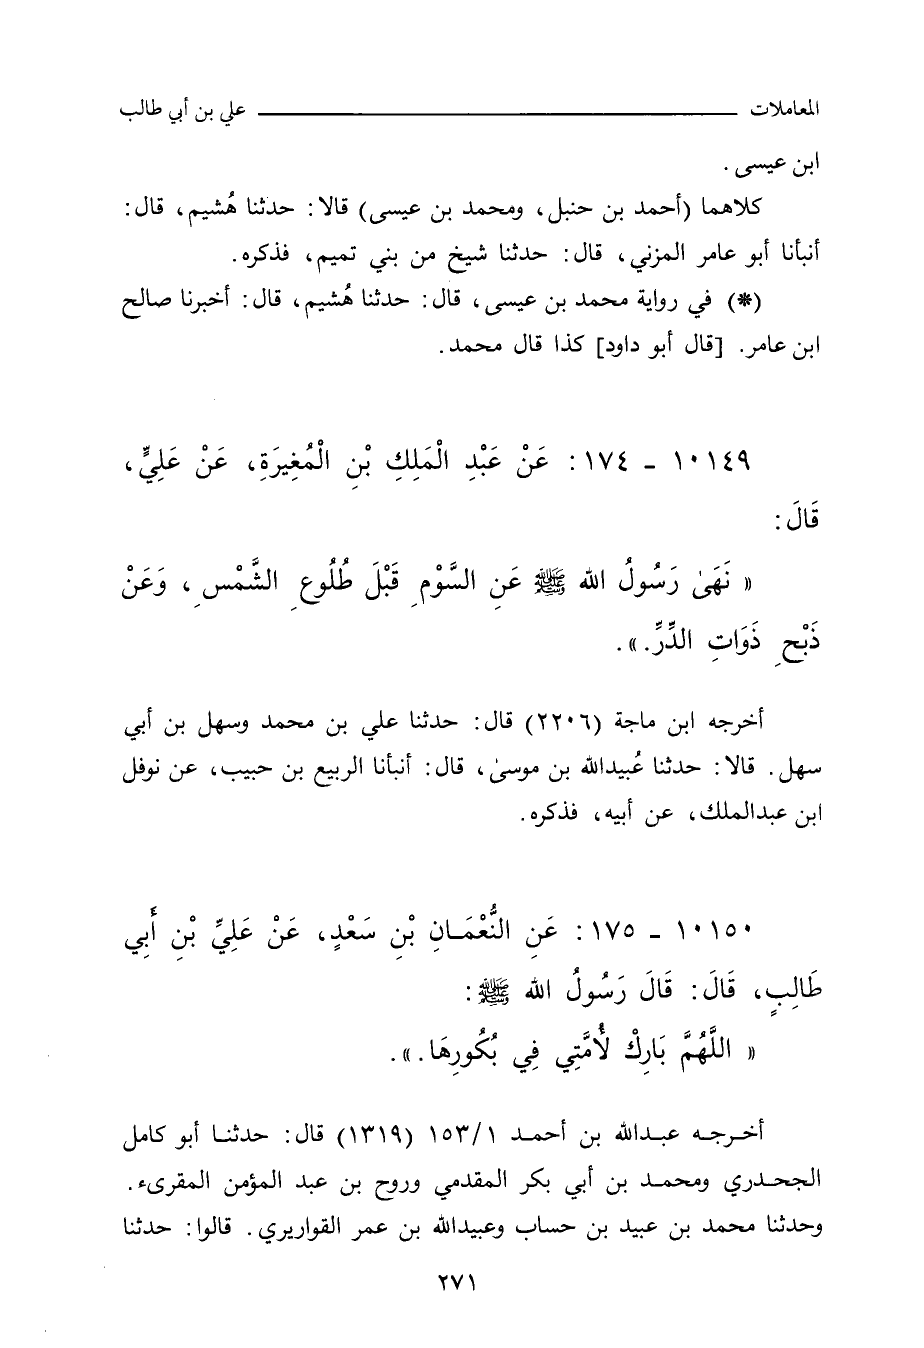 المعاملات ــــــــــــــــــــ علي بن أبي طالب
ابن عيسى .
كلاهما (أحمد بن حنبل، ومحمد بن عيسى) قالا: حدثنا هُشيم، قال:
أنبأنا أبو عامر المزني، قال: حدثنا شيخ من بني تميم، فذكره.
(*) في رواية محمد بن عيسى، قال: حدثنا هُشيم، قال: أخبرنا صالح
ابن عامر. [قال أبو داود] كذا قال محمد.
١٠١٤٩ ـ ١٧٤ : عَنْ عَبْدِ الْمَلِكِ بْنِ الْمُغِيرَةِ، عَنْ عَلِيٍّ،
قَالَ:
« نَهَىٰ رَسُولُ الله ﷺ عَنِ السَّوْمِ قَبْلَ طُلُوعِ الشَّمْسِ، وَعَنْ
ذَبْحِ ذَوَاتِ الدِّرِّ.».
أخرجه ابن ماجة (٢٢٠٦) قال: حدثنا علي بن محمد وسهل بن أبي
سهل. قالا: حدثنا عُبيدالله بن موسىٰ، قال: أنبأنا الربيع بن حبيب، عن نوفل
ابن عبدالملك، عن أبيه، فذكره.
١٠١٥٠ ـ ١٧٥ : عَنِ النُّعْمَانِ بْنِ سَعْدٍ، عَنْ عَلِيِّ بْنِ أَبِي
طَالِبٍ، قَالَ: قَالَ رَسُولُ الله ﷺ:
« اللَّهُمَّ بَارِكْ لأُمَّتِي فِي بُكُورِهَا.».
أخرجه عبدالله بن أحمد ١٥٣/١ (١٣١٩) قال: حدثنا أبو كامل
الجحدري ومحمد بن أبي بكر المقدمي وروح بن عبد المؤمن المقرىء.
وحدثنا محمد بن عبيد بن حساب وعبيدالله بن عمر القواريري. قالوا: حدثنا
٢٧١